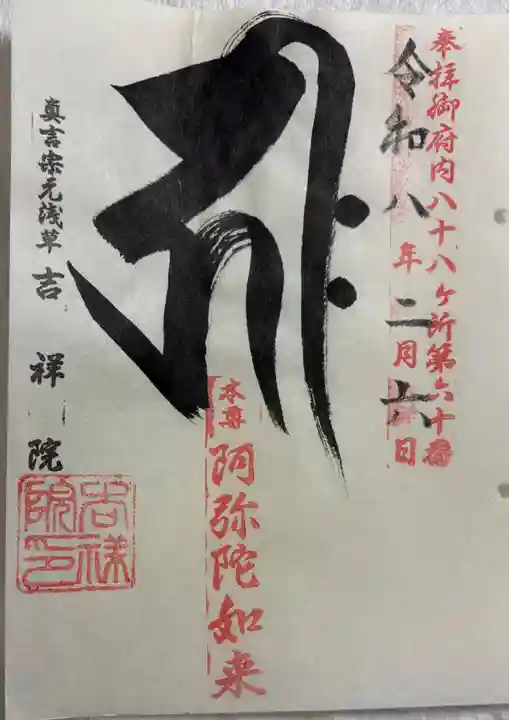 奉拝御府内八十八ヶ所第六十番
令和八年二月六日
𑖮𑖿𑖨𑖱𑖾
本尊
阿弥陀如来
真言宗元浅草 吉祥院
吉祥院印